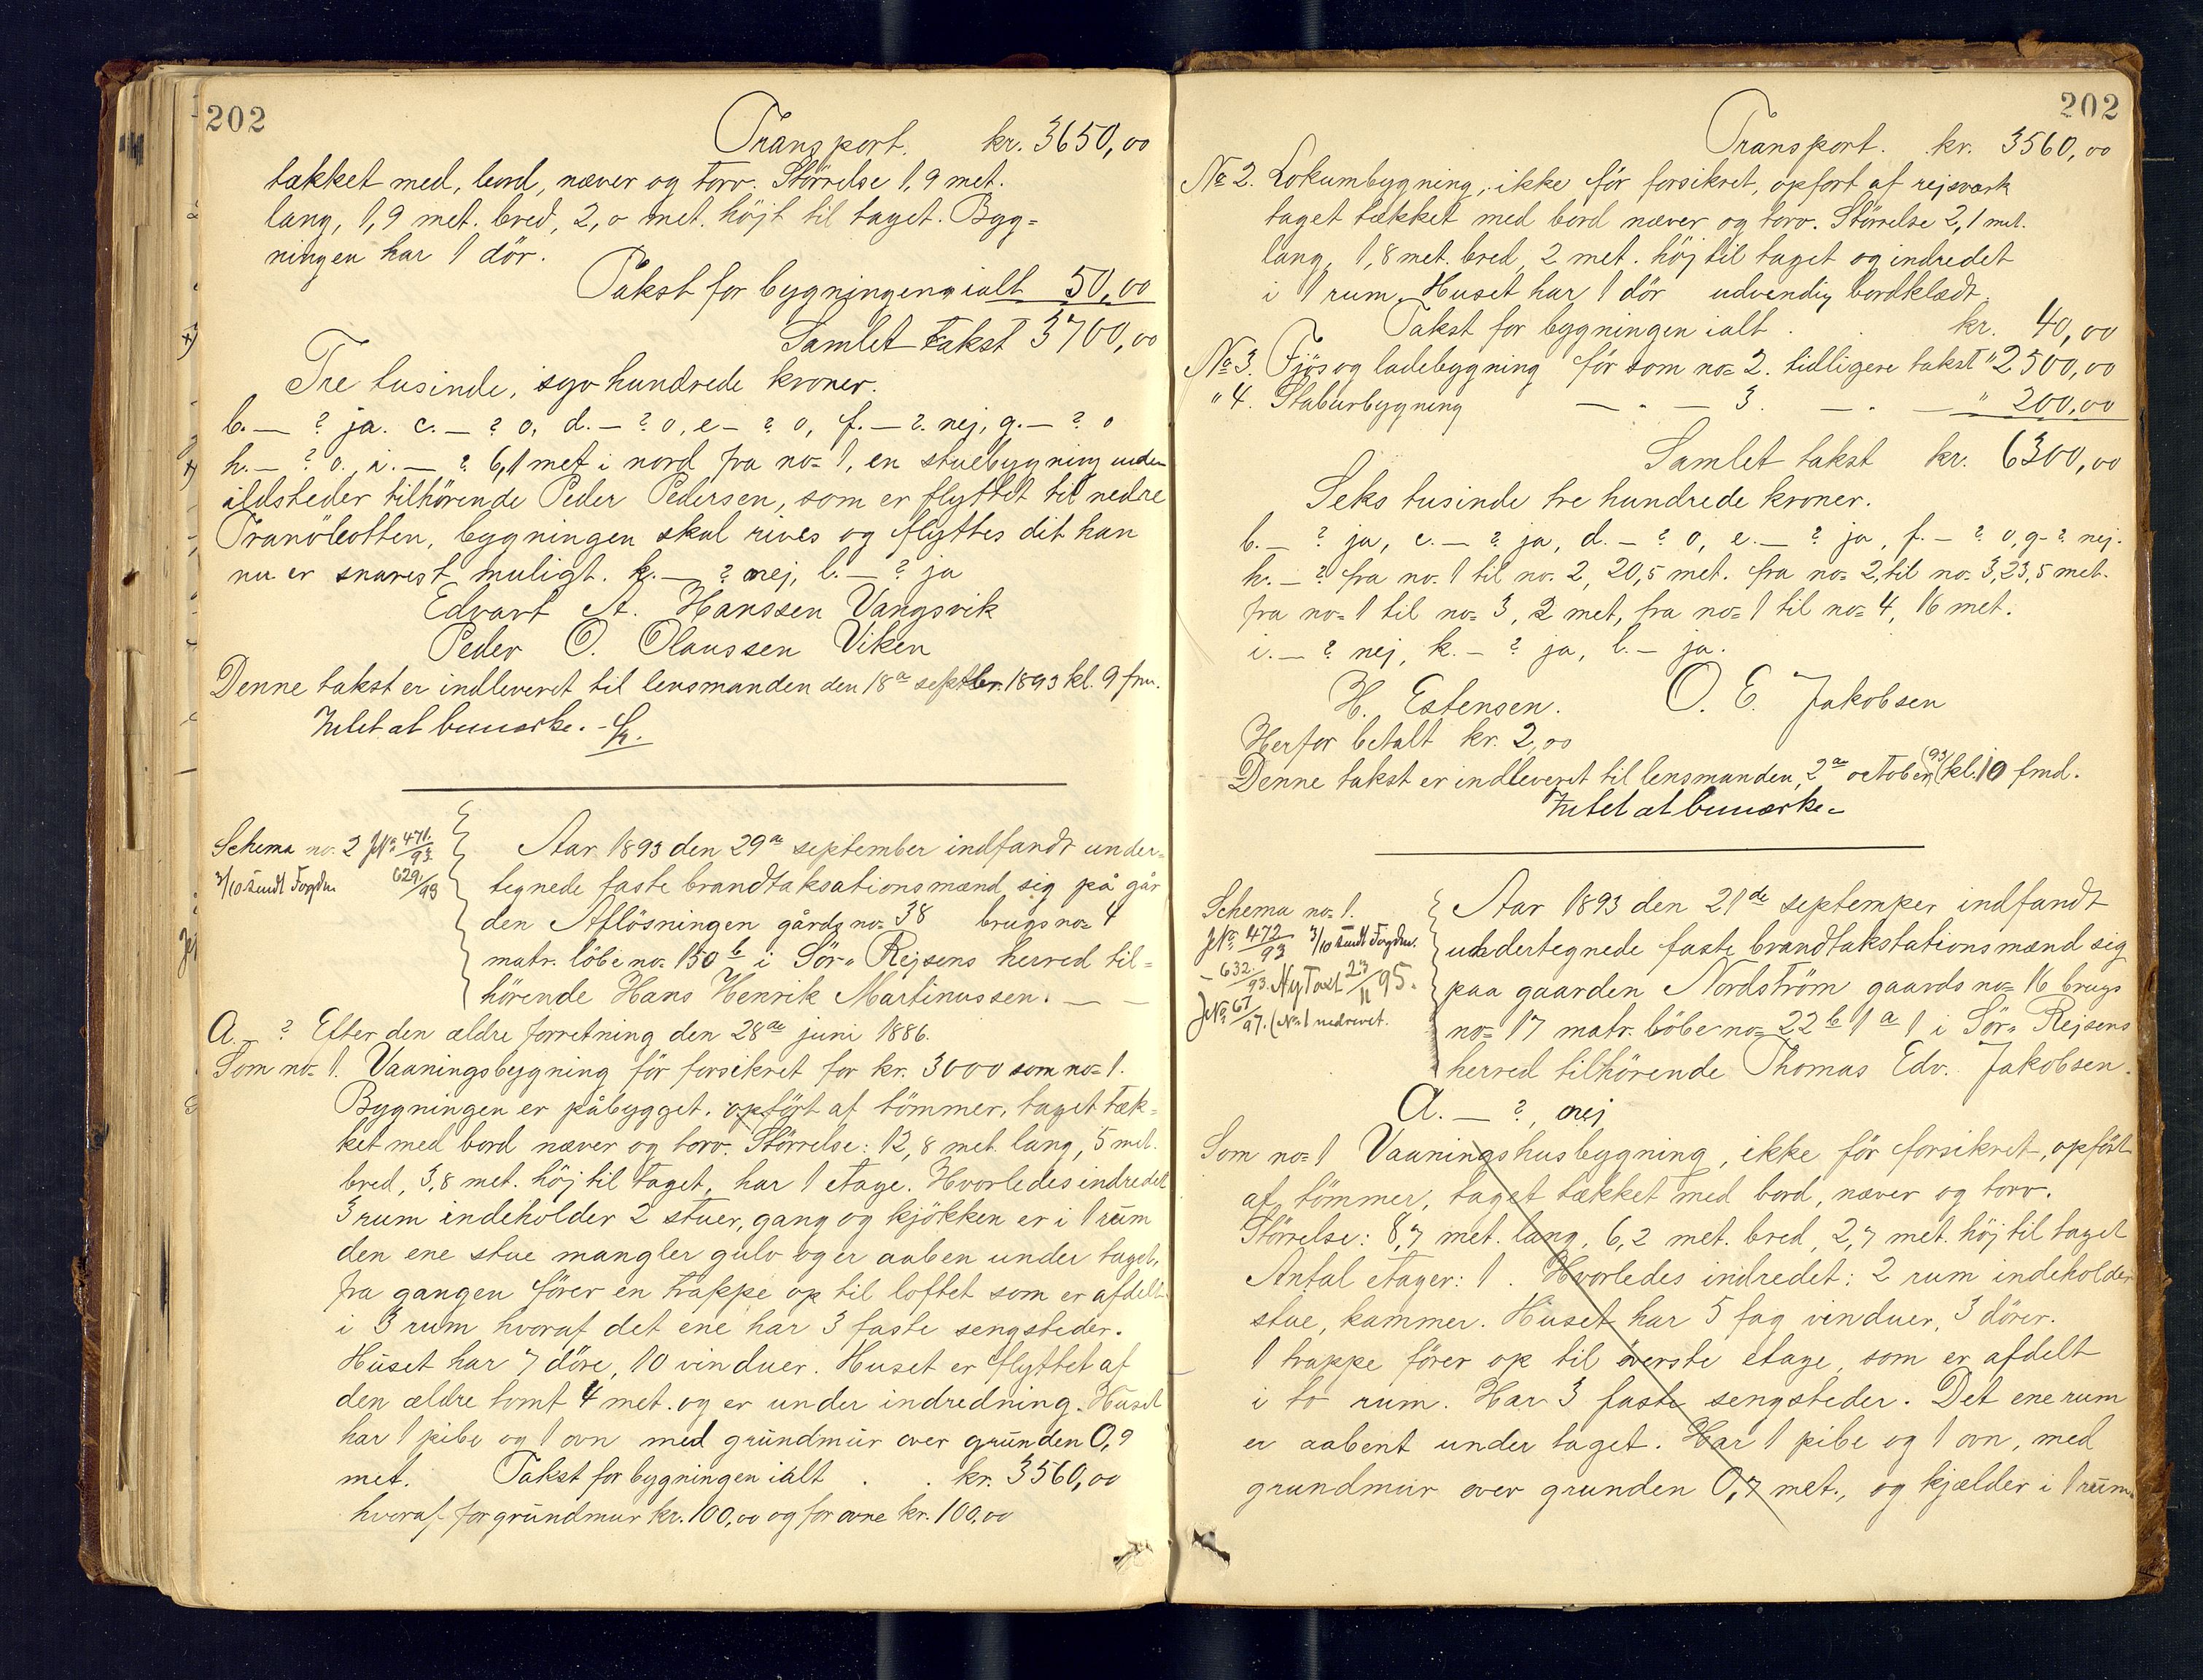 202
Transport. kr. 3650,00
takket med, bord, næver og torv. Störrelse 1,9 met.
lang, 1,9 met. bred, 2,0 met. höjt til taget. Byg=
ningen har 1 dör.
Takst for bygningen ialt 50,00
Samlet takst 3700,00
Tre tusinde, syv hundrede kroner.
b. — ? ja. c. — ? o, d. — ? o, e — ? o, f. — ? nej, g. — ? o
h. — ? o. i. — ? 6,1 met i nord fra no= 1, en stuebygning uden
ildsteder tilhörende Peder Pedersen, som er flyttet til nedre
Tranöbotten, bygningen skal rives og flyttes dit han
nu er snarest muligt. k. — ? nej, l. — ? ja
Edvart A. Hanssen Vangsvik
Peder O. Olaussen Viken
Denne takst er indleveret til lensmanden den 18de septbr. 1893 kl. 9 fm.
Intet at bemærke. -
Schema no. 2 JNo 471/93
3/10 sendt Fogden 629/93
Aar 1893 den 29de september indfandt under=
tegnede faste brandtaksationsmænd sig på går
den Aflösningen gårds no= 38 brugs no= 4
matr. löbe no= 150 b i Sör= Rejsens herred til=
hörende Hans Henrik Martinussen. — —
A. — ? Efter den ældre forretning den 28de juni 1886.
Som no= 1. Vaaningsbygning för forsikret for kr. 3000 som no= 1.
Bygningen er påbygget. opfört af tömmer, taget tæk=
ket med bord næver og torv. Störrelse: 12,8 met. lang, 5 met.
bred, 3,8 met. höj til taget, har 1 etage. Hvorledes indredet
3 rum indeholder 2 stuer, gang og kjökken er i 1 rum
den ene stue mangler gulv og er aaben under taget,
fra gangen förer en trappe op til loftet som er afdelt
i 3 rum hvoraf det ene har 3 faste sengsteder.
Huset har 7 döre, 10 vinduer. Huset er flyttet af
den ældre tomt 4 met. og er under indredning. Huset
har 1 pibe og 1 ovn med grundmur over grunden 0,9
met. Takst for bygningen ialt . . kr. 3560,00
hvoraf for grundmur kr. 100,00 og for ovne kr. 100,00
202
Transport. kr. 3560,00
No 2. Lokumbygning, ikke för forsikret, opfort af rejsværk
taget tækket med bord næver og torv. Störrelse 2,1 met.
lang, 1,8 met. bred, 2 met. höj til taget og indredet
i 1 rum. Huset har 1 dör udvendig bordklædt.
Takst for bygningen ialt . . kr. 40,00
No 3. Fjös og ladebygning för som no= 2. tidligere takst " 2500,00
" 4. Staburbygning — " — 3. — " — " 200,00
Samlet takst kr. 6300,00
Seks tusinde tre hundrede kroner.
b. — ? ja, c. — ? ja, d. — ? o, e. — ? ja, f. — ? o, g — ? nej.
h. — ? fra no. 1 til no= 2, 20,5 met. fra no= 2, til no= 3, 23,5 met.
fra no= 1 til no= 3, 2 met, fra no= 1 til no= 4, 16 met.
i. — ? nej, k. — ? ja, l. — ja.
H. Estensen. O. E. Jakobsen
Herfor betalt kr. 2,00
Denne takst er indleveret til lensmanden, 2de october (93) kl. 10 fmd.
Intet at bemærke -
Schema no= 1.
JNo 472/93 3/10 sendt Fogden.
- 632/93. Ny Taxt 23/11 95.
JNo 61/97. (No 1 nedrevet.
Aar 1893 den 21de septemper indfandt
undertegnede faste brandtakstationsmænd sig
paa gaarden Nordström gaards no= 16 brugs
no= 17 matr. löbe no= 22 b 1 a 1 i Sör= Rejsens
herred tilhörende Thomas Edv. Jakobsen.
A. — ?, nej
Som no= 1 Vaaningshusbygning, ikke för forsikret, opfört
af tömmer, taget tækket med bord, næver og torv.
Störrelse: 8,7 met. lang, 6,2 met. bred, 2,7 met. höj til taget
Antal etager: 1. Hvorledes indredet: 2 rum indeholder
stue, kammer. Huset har 5 fag vinduer, 3 dörer.
1 trappe förer op til överste etage, som er afdelt
i to rum. Har 3 faste sengsteder. Det ene rum
er aabent under taget. Har 1 pibe og 1 ovn, med
grundmur over grunden 0,7 met., og kjælder i 1 rum.